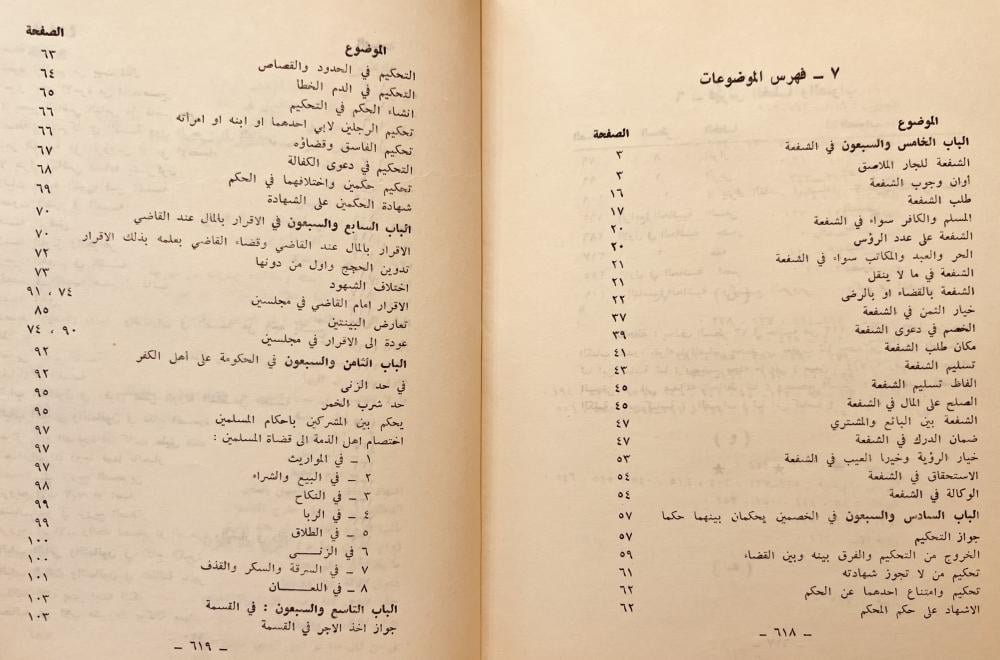 ٧ ــ فهرس الموضوعات
الموضوع الصفحة
الباب الخامس والسبعون في الشفعة ٣
الشفعة للجار الملاصق ٣
أوان وجوب الشفعة ١٦
طلب الشفعة ١٧
المسلم والكافر سواء في الشفعة ٢٠
الشفعة على عدد الرؤس ٢٠
الحر والعبد والمكاتب سواء في الشفعة ٢١
الشفعة في ما لا ينقل ٢١
الشفعة بالقضاء او بالرضى ٢٢
خيار الثمن في الشفعة ٣٧
الخصم في دعوى الشفعة ٣٩
مكان طلب الشفعة ٤١
تسليم الشفعة ٤٣
الفاظ تسليم الشفعة ٤٥
الصلح على المال في الشفعة ٤٥
الشفعة بين البائع والمشتري ٤٧
ضمان الدرك في الشفعة ٤٧
خيار الرؤية وخيرا العيب في الشفعة ٥٣
الاستحقاق في الشفعة ٥٤
الوكالة في الشفعة ٥٤
الباب السادس والسبعون في الخصمين يحكمان بينهما حكما ٥٧
جواز التحكيم ٥٧
الخروج من التحكيم والفرق بينه وبين القضاء ٥٩
تحكيم من لا تجوز شهادته ٦١
تحكيم وامتناع احدهما عن الحكم ٦٢
الاشهاد على حكم المحكم ٦٢
ــ ٦١٨ ــ
الموضوع الصفحة
التحكيم في الحدود والقصاص ٦٣
التحكيم في الدم الخطا ٦٤
انشاء الحكم في التحكيم ٦٥
تحكيم الرجلين لابي احدهما او ابنه او امرأته ٦٦
تحكيم الفاسق وقضاؤه ٦٦
التحكيم في دعوى الكفالة ٦٧
تحكيم حكمين واختلافهما في الحكم ٦٨
شهادة الحكمين على الشهادة ٦٩
الباب السابع والسبعون في الاقرار بالمال عند القاضي ٧٠
الاقرار بالمال عند القاضي وقضاء القاضي بعلمه بذلك الاقرار ٧٠
تدوين الحجج واول من دونها ٧٢
اختلاف الشهود ٧٣
الاقرار امام القاضي في مجلسين ٧٤ ، ٩١
تعارض البينتين ٨٥
عودة الى الاقرار في مجلسين ٩٠ ، ٧٤
الباب الثامن والسبعون في الحكومة على اهل الكفر ٩٢
في حد الزنى ٩٢
حد شرب الخمر ٩٥
يحكم بين المشركين باحكام المسلمين ٩٥
اختصام اهل الذمة الى قضاة المسلمين : ٩٧
١ ــ في المواريث ٩٧
٢ ــ في البيع والشراء ٩٧
٣ ــ في النكاح ٩٨
٤ ــ في الربا ٩٩
٥ ــ في الطلاق ٩٩
٦ في الزنــــى ١٠٠
٧ ــ في السرقة والسكر والقذف ١٠٠
٨ ــ في اللعـــــان ١٠١
الباب التاسع والسبعون : في القسمة ١٠٣
جواز اخذ الاجر في القسمة ١٠٣
ــ ٦١٩ ــ